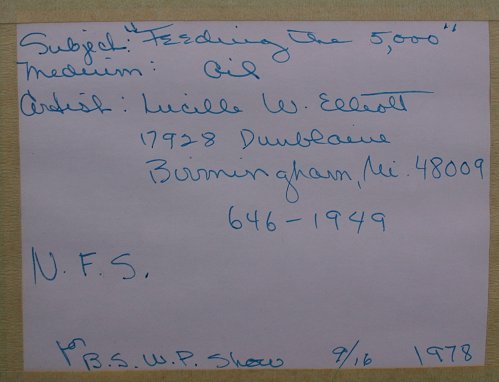 Subject: "Feeding the 5,000"
Medium: Oil
Artist: Lucille W. Elliott
17928 Dunblaine
Birmingham, Mi. 48009
646-1949
N. F. S.
for B. S. W. P. Show 9/16 1978